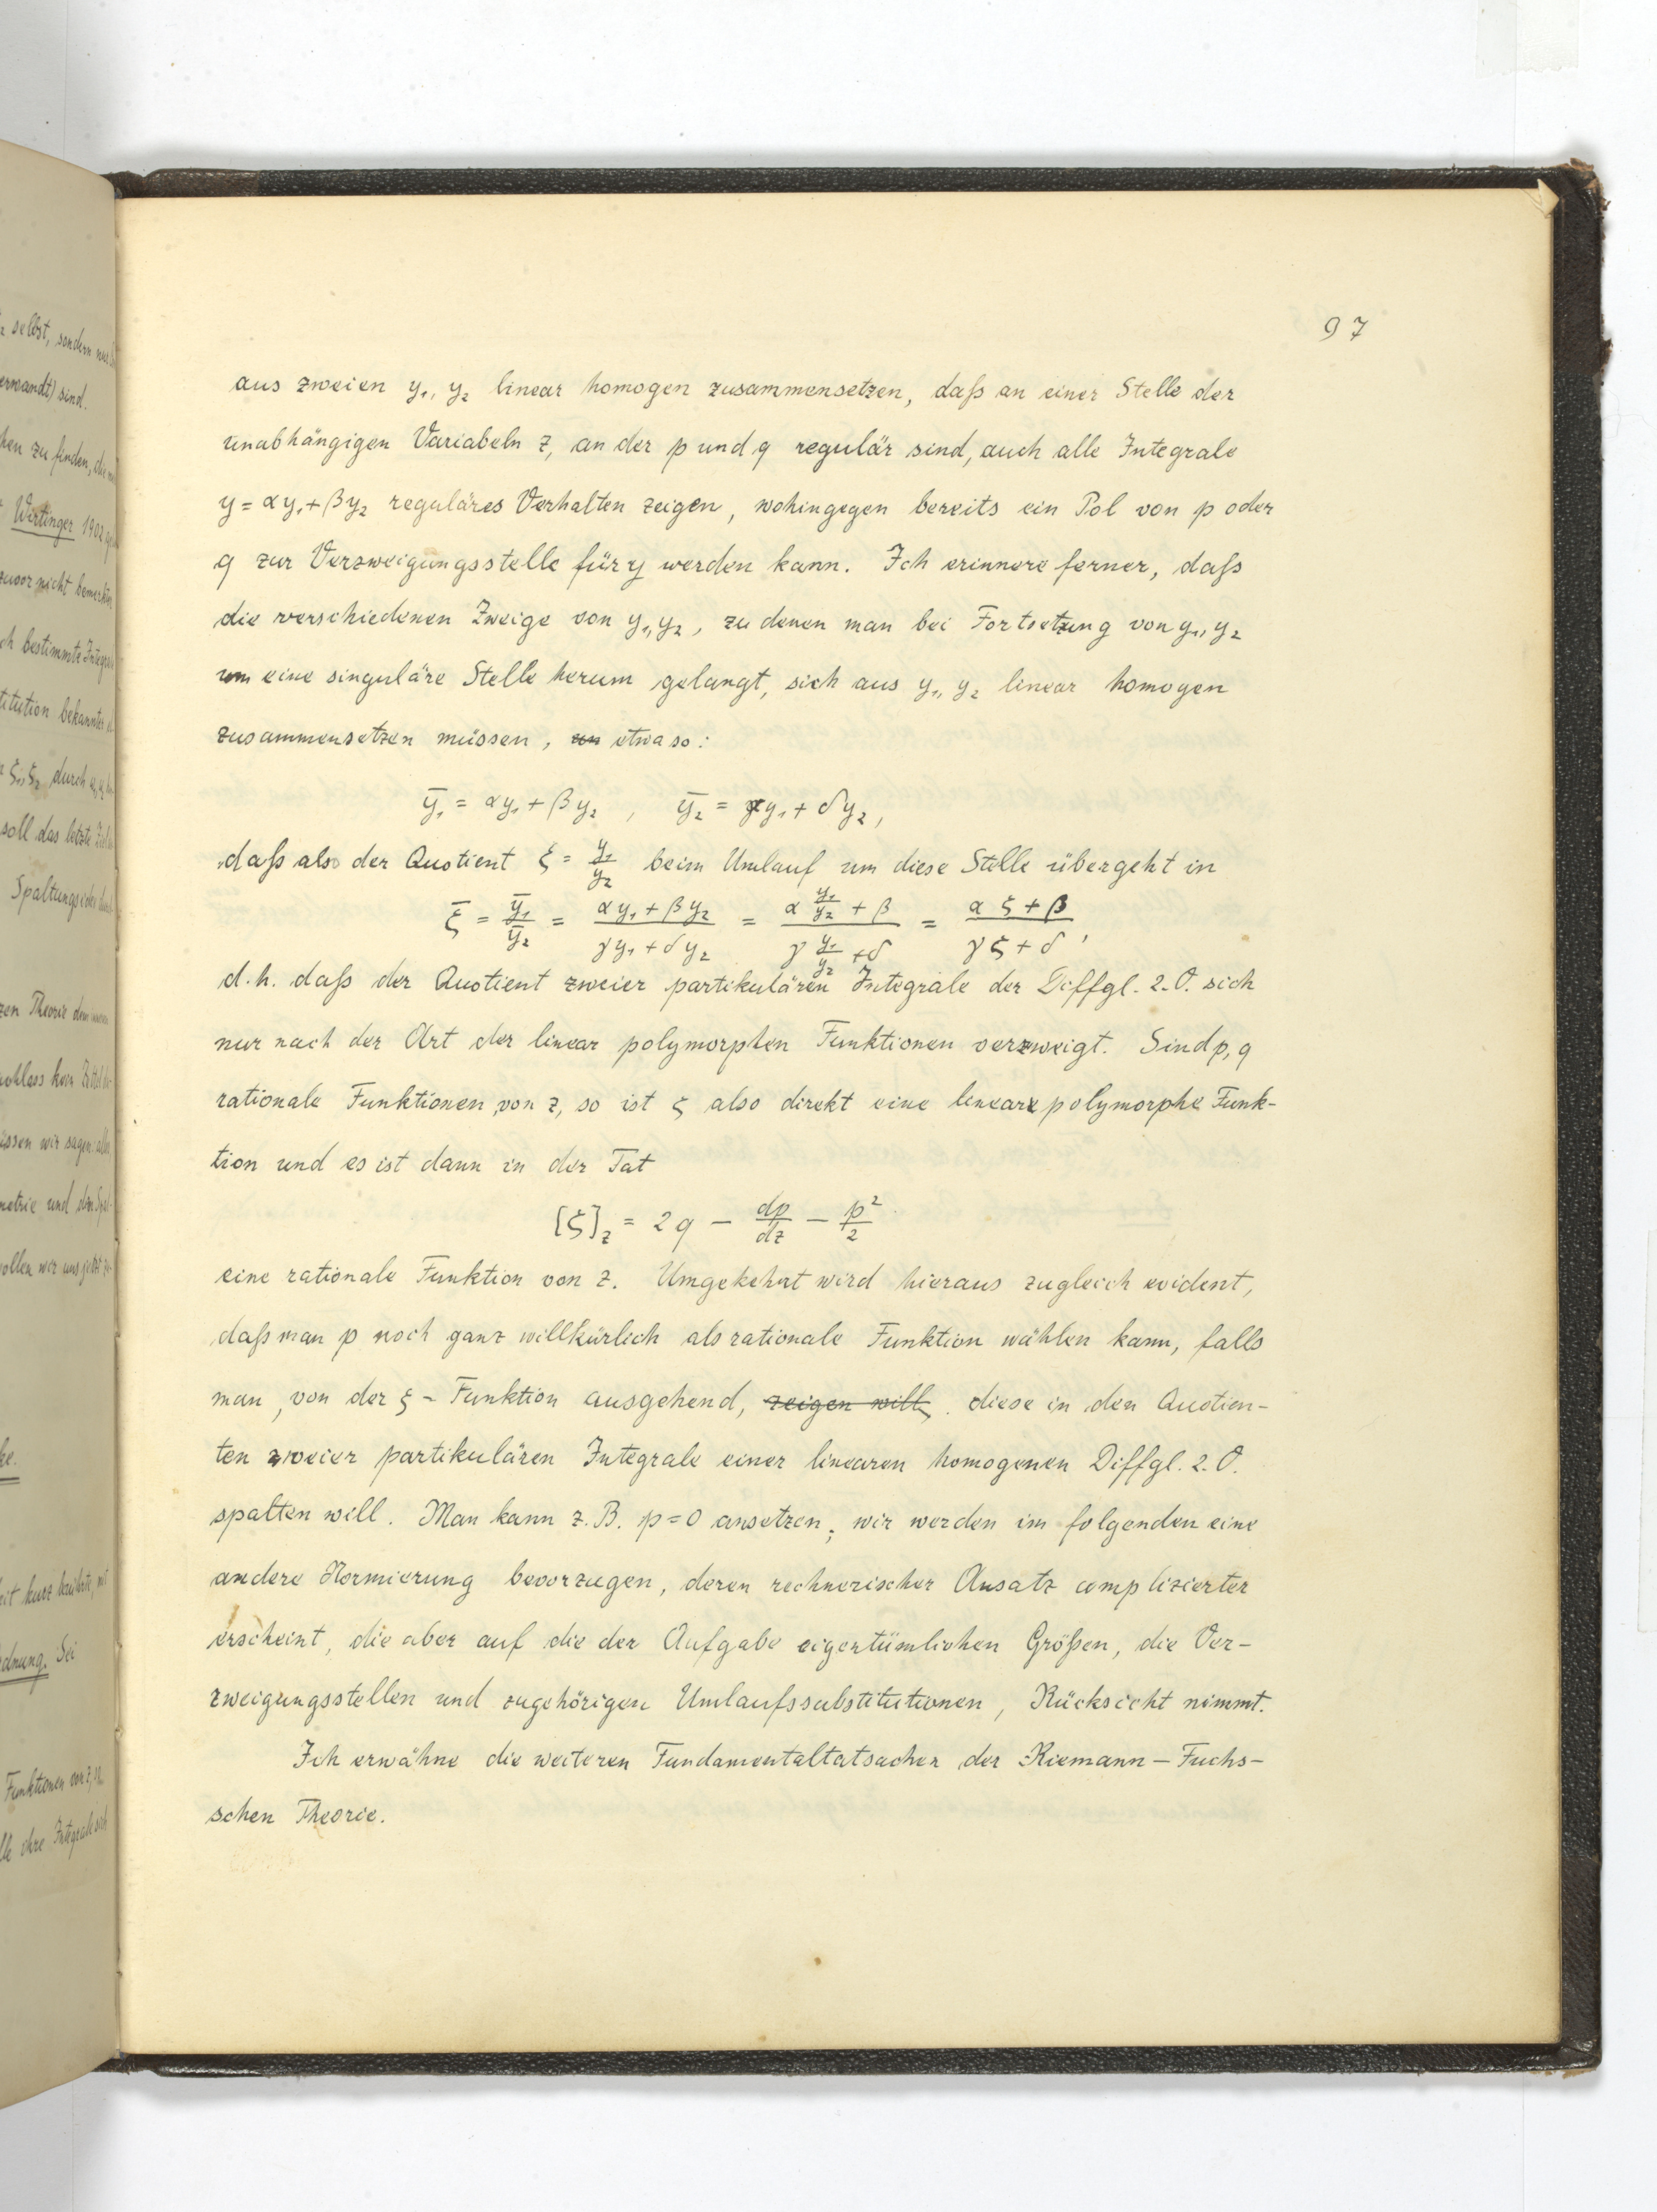 97
aus zweien y₁, y₂ linear homogen zusammensetzen, daß an einer Stelle der
unabhängigen Variabeln z, an der p und q regulär sind, auch alle Integrale
y = αy₁ + βy₂ reguläres Verhalten zeigen, wohingegen bereits ein Pol von p oder
q zur Verzweigungsstelle für y werden kann. Ich erinnere ferner, daß
die verschiedenen Zweige von y₁, y₂, zu denen man bei Fortsetzung von y₁, y₂
um eine singuläre Stelle herum gelangt, sich aus y₁, y₂ linear homogen
zusammensetzen müssen, etwa so:
ȳ₁ = αy₁ + βy₂ , ȳ₂ = γy₁ + δy₂,
daß also der Quotient ζ = y₁/y₂ beim Umlauf um diese Stelle übergeht in
ζ̄ = ȳ₁/ȳ₂ = (αy₁ + βy₂)/(γy₁ + δy₂) = (α y₁/y₂ + β)/(γ y₁/y₂ + δ) = (αζ + β)/(γζ + δ),
d.h. daß der Quotient zweier partikulären Integrale der Diffgl. 2. O. sich
nur nach der Art der linear polymorphen Funktionen verzweigt. Sind p, q
rationale Funktionen von z, so ist ζ also direkt eine linear polymorphe Funk-
tion und es ist dann in der Tat
[ζ]_z = 2q − dp/dz − p²/2
eine rationale Funktion von z. Umgekehrt wird hieraus zugleich evident,
daß man p noch ganz willkürlich als rationale Funktion wählen kann, falls
man, von der ζ-Funktion ausgehend, zeigen will, diese in den Quotien-
ten zweier partikulären Integrale einer linearen homogenen Diffgl. 2. O.
spalten will. Man kann z. B. p = 0 ansetzen; wir werden im folgenden eine
andere Normierung bevorzugen, deren rechnerischer Ansatz complizierter
erscheint, die aber auf die der Aufgabe eigentümlichen Größen, die Ver-
zweigungsstellen und zugehörigen Umlaufssubstitutionen, Rücksicht nimmt.
Ich erwähne die weiteren Fundamentaltatsachen der Riemann-Fuchs-
schen Theorie.
selbst, sondern
verwandt) sind.
zu finden,
Wirtinger 1902
zuvor nicht
bestimmte
bekannter
durch
soll das letzte
Theorie
müssen wir sagen:
und
wollen wir uns jetzt
kurz
Sei
Funktionen von z,
ihre Integrale sich